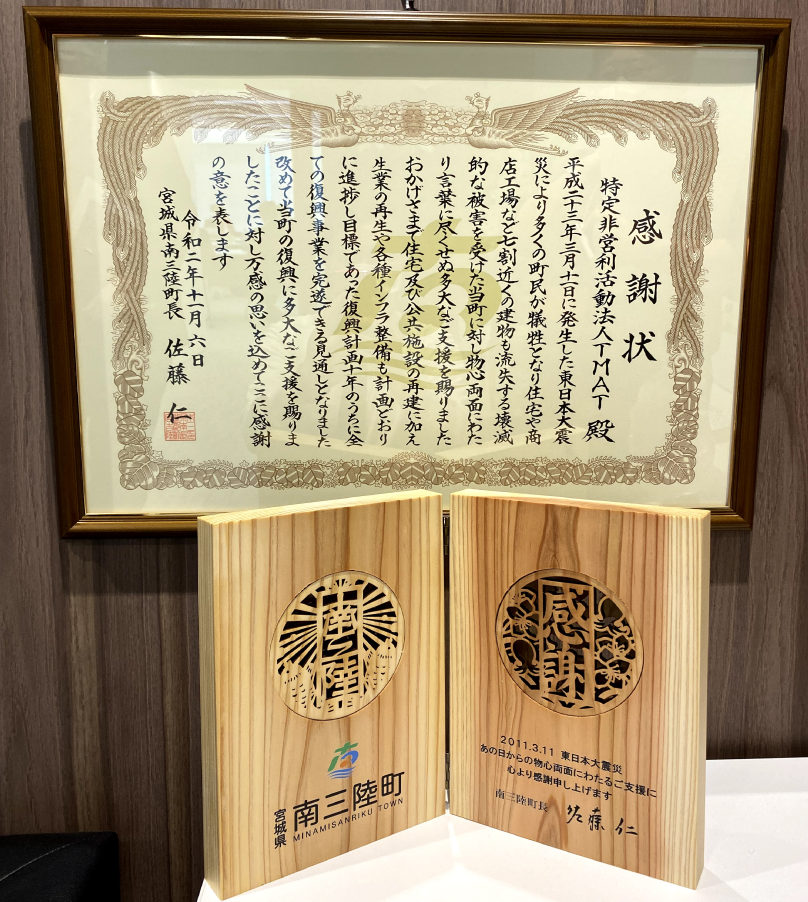 感謝状
特定非営利活動法人TMAT 殿
平成二十三年三月十一日に発生した東日本大震
災により多くの町民が犠牲となり住宅や商
店工場など七割近くの建物も流失する壊滅
的な被害を受けた当町に対し物心両面にわた
り言葉に尽くせぬ多大なご支援を賜りました
おかげさまで住宅及び公共施設の再建に加え
生業の再生や各種インフラ整備も計画どおり
に進捗し目標であった復興計画十年のうちに全
ての復興事業を完遂できる見通しとなりました
改めて当町の復興に多大なご支援を賜りま
したことに対し万感の思いを込めてここに感謝
の意を表します
令和二年十一月六日
宮城県南三陸町長 佐藤 仁
南三陸
宮城県
南三陸町
MINAMISANRIKU TOWN
感謝
2011.3.11 東日本大震災
あの日からの物心両面にわたるご支援に
心より感謝申し上げます
南三陸町長 佐藤 仁